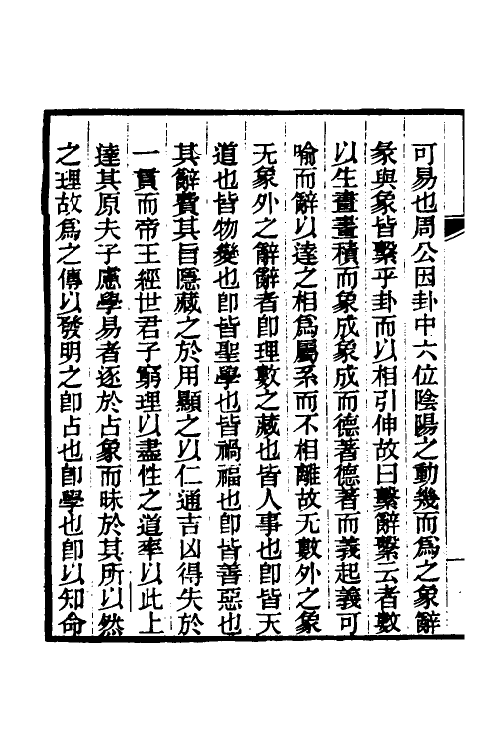 可易也周公因卦中六位陰陽之動幾而爲之象辭
彖與象皆繫乎卦而以相引伸故曰繫辭繫云者數
以生畫畫積而象成象成而德著德著而義起義可
喻而辭以達之相爲屬系而不相離故无數外之象
无象外之辭辭者卽理數之藏也皆人事也卽皆天
道也皆物變也卽皆聖學也皆禍福也卽皆善惡也
其辭費其旨隱藏之於用顯之以仁通吉凶得失於
一貫而帝王經世君子窮理以盡性之道率以此上
達其原夫子慮學易者逐於占象而昧於其所以然
之理故爲之傳以發明之卽占也卽學也卽以知命